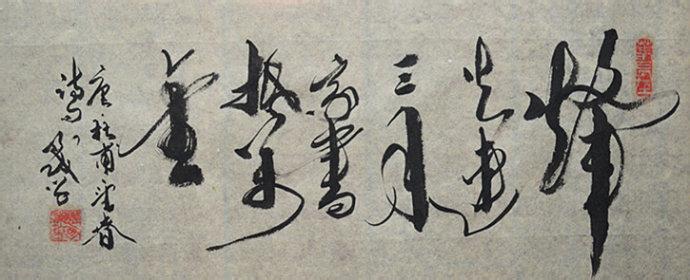 烽
火連
三月
家書
抵萬
金
唐杜甫望春
詩句